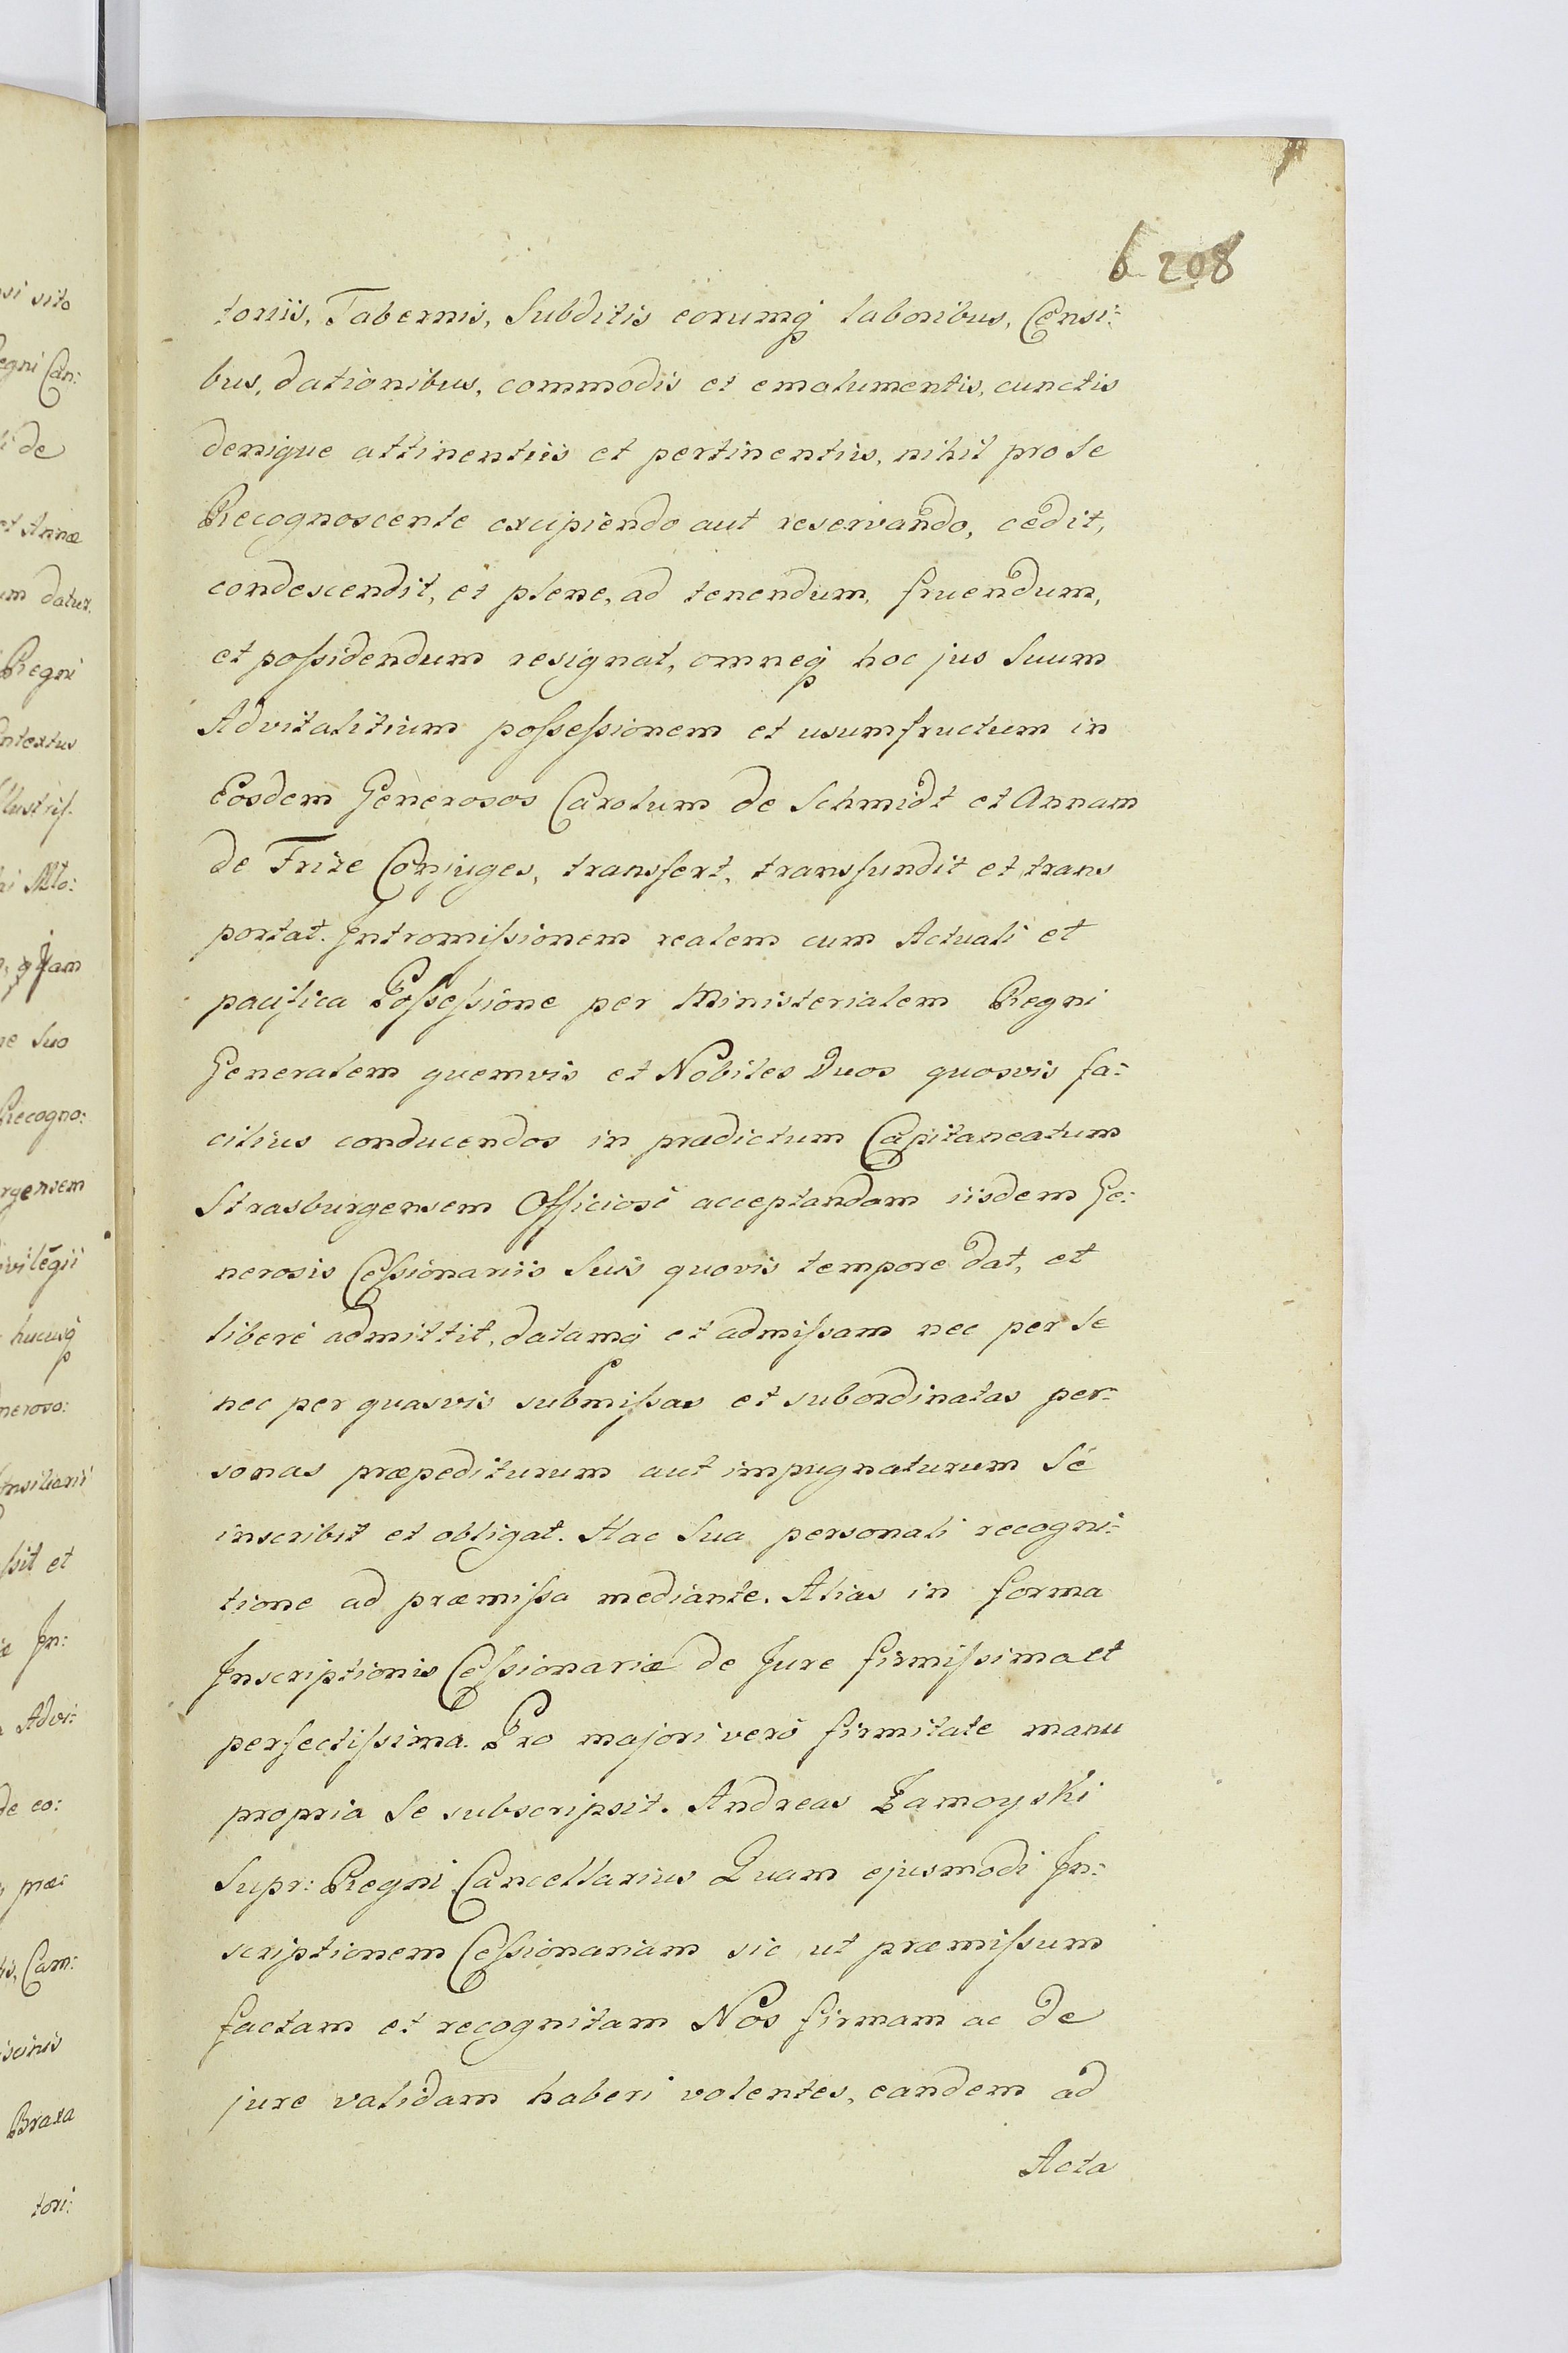 6 208
toriis, Tabernis, Subditis eorumq́ laboribus, Censi:
bus, dationibus, commodis et emolumentis, cunctis
denique attinentiis et pertinentiis, nihil pro Se
Recognoscente excipiendo aut reservando, cedit,
condescendit, et plene, ad tenendum, fruendum,
et poſsidendum resignat, omneq́ hoc jus Suum
Advitalitium poſseſsionem et usumfructum in
Eosdem Generosos Carolum de Schmidt et Annam
de Frize Conjuges, transfert, transfundit et trans
portat. Intromiſsionem realem cum Actuali et
pacifica Poſseſsione per Ministerialem Regni
Generalem quemvis et Nobiles Duos quosvis fa:
cilius conducendos in prædictum Capitaneatum
Strasburgensem Officiosè acceptandam iisdem Ge:
nerosis Ceſsionariis Suis quovis tempore dat, et
liberè admittit, datamq́ et admiſsam nec per Se
nec per quasvis submiſsas et subordinatas per:
sonas præpediturum aut impugnaturum Se
inscribit et obligat. Hac Sua personali recogni:
tione ad præmiſsa mediante. Alias in forma
Inscriptionis Ceſsionariæ de Jure firmiſsima et
perfectiſsima. Pro majori verò firmitate manu
propria Se subscripsit. Andreas Zamoyski
Supr: Regni Cancellarius Quam ejusmodi In:
scriptionem Ceſsionariam sic ut præmiſsum
factam et recognitam Nos firmam ac de
jure validam haberi volentes, eandem ad
Acta
si sito
egni Can:
i de
et Annæ
um datur.
Regni
ntextus
llustriſ.
ni Mło:
jam
ne Suo
Recogno:
rgensem
ivilegii
hucusq́
neroso:
nsiliarii
ſsit et
In:
Advi:
de eo:
præ:
is, Cam:
iscinis
Braxa
tori: